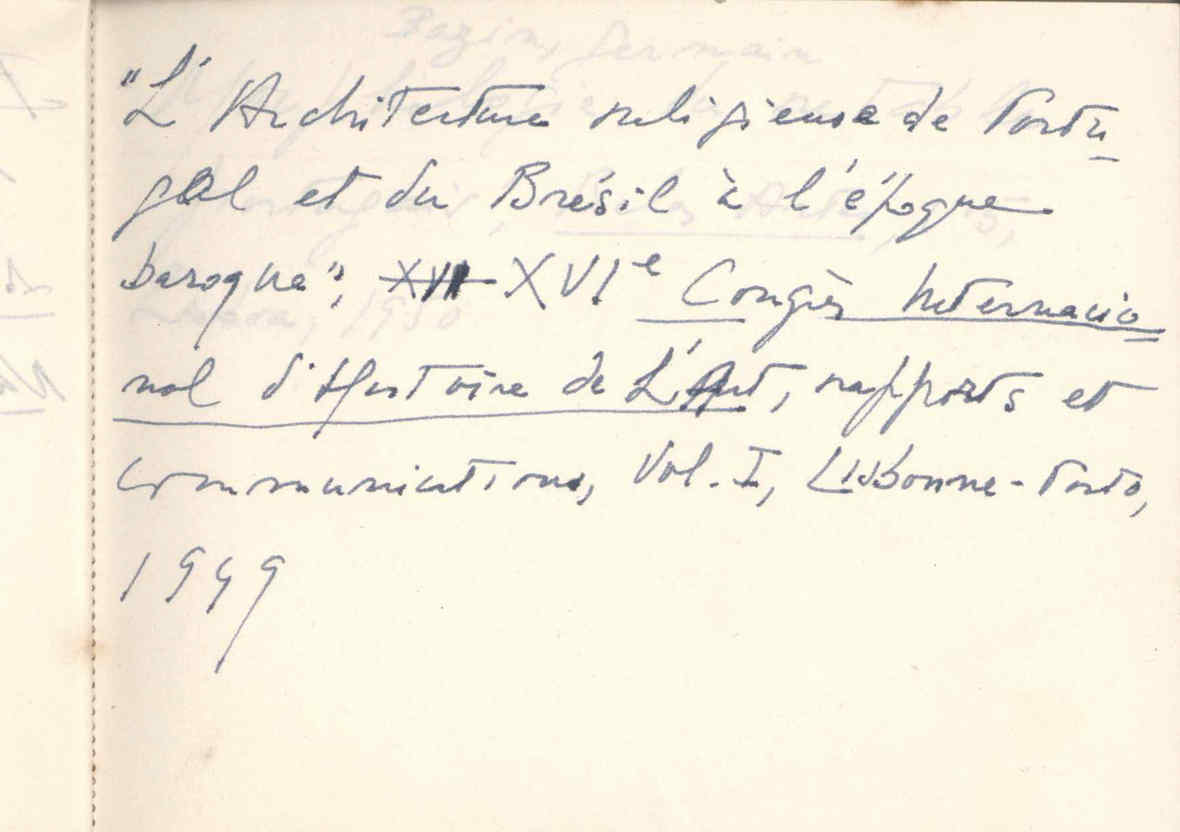 "L'Architecture religieuse de Portu-
gal et du Brésil à l'époque
baroque", XVII XVIe Congrès Internacio-
nal d'Histoire de L'Art, rapports et
communications, Vol. I, Lisbonne-Porto,
1949